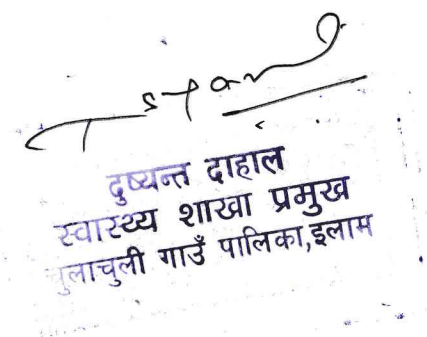 दुष्यन्त दाहाल
स्वास्थ्य शाखा प्रमुख
चुलाचुली गाउँ पालिका,इलाम